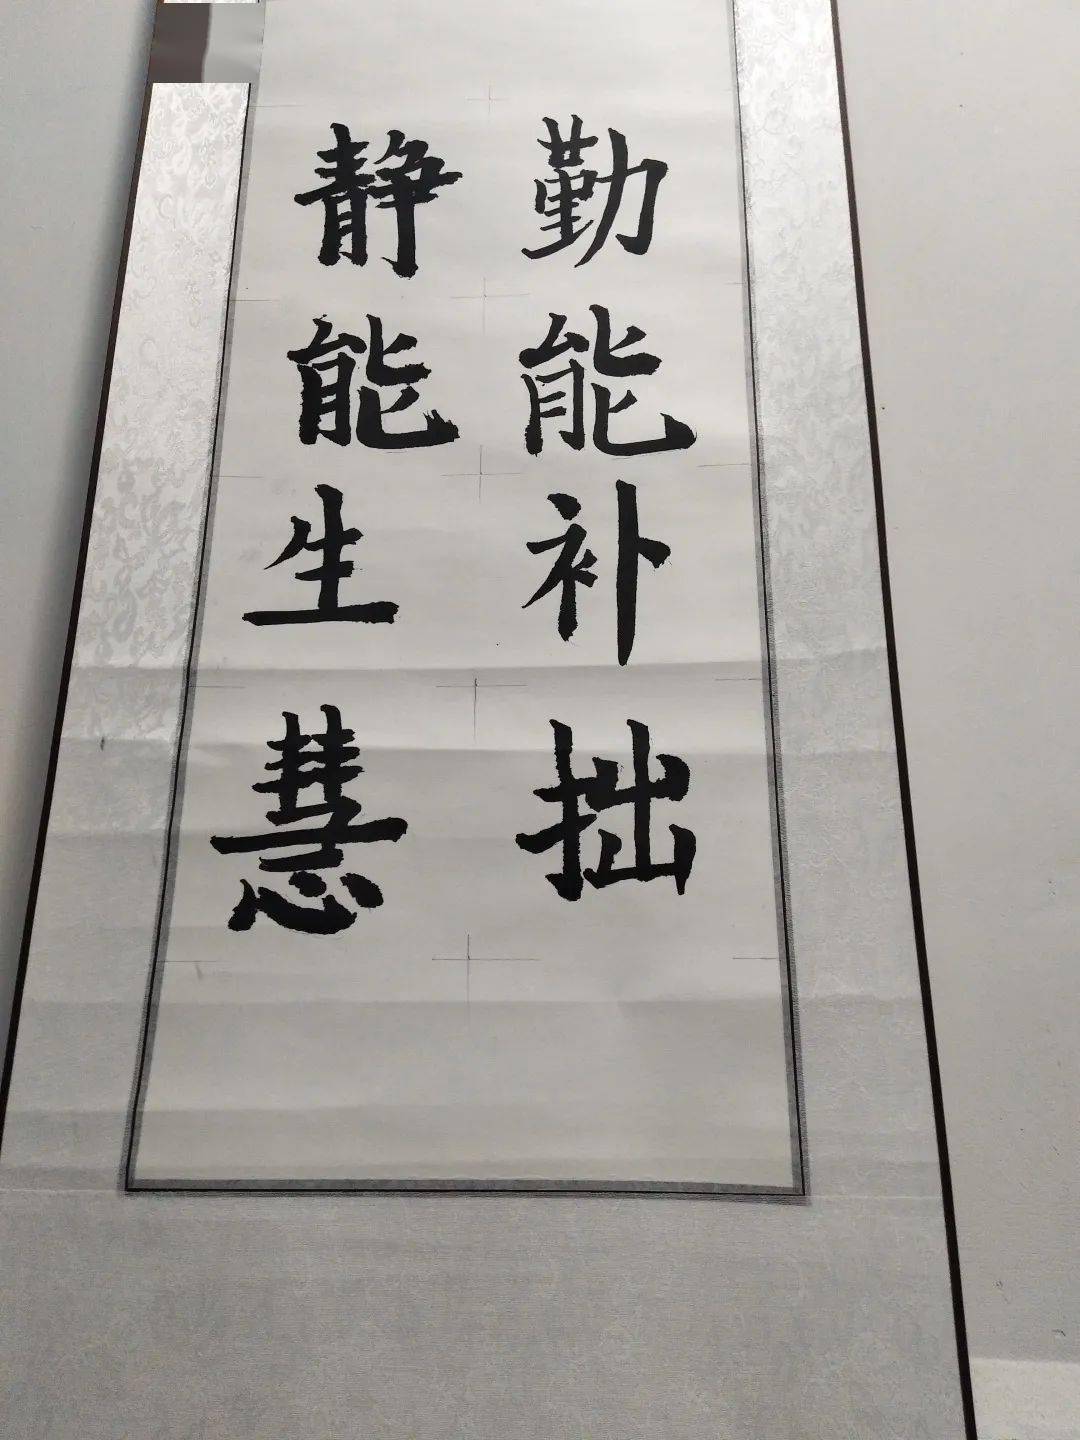 勤能补拙
静能生慧